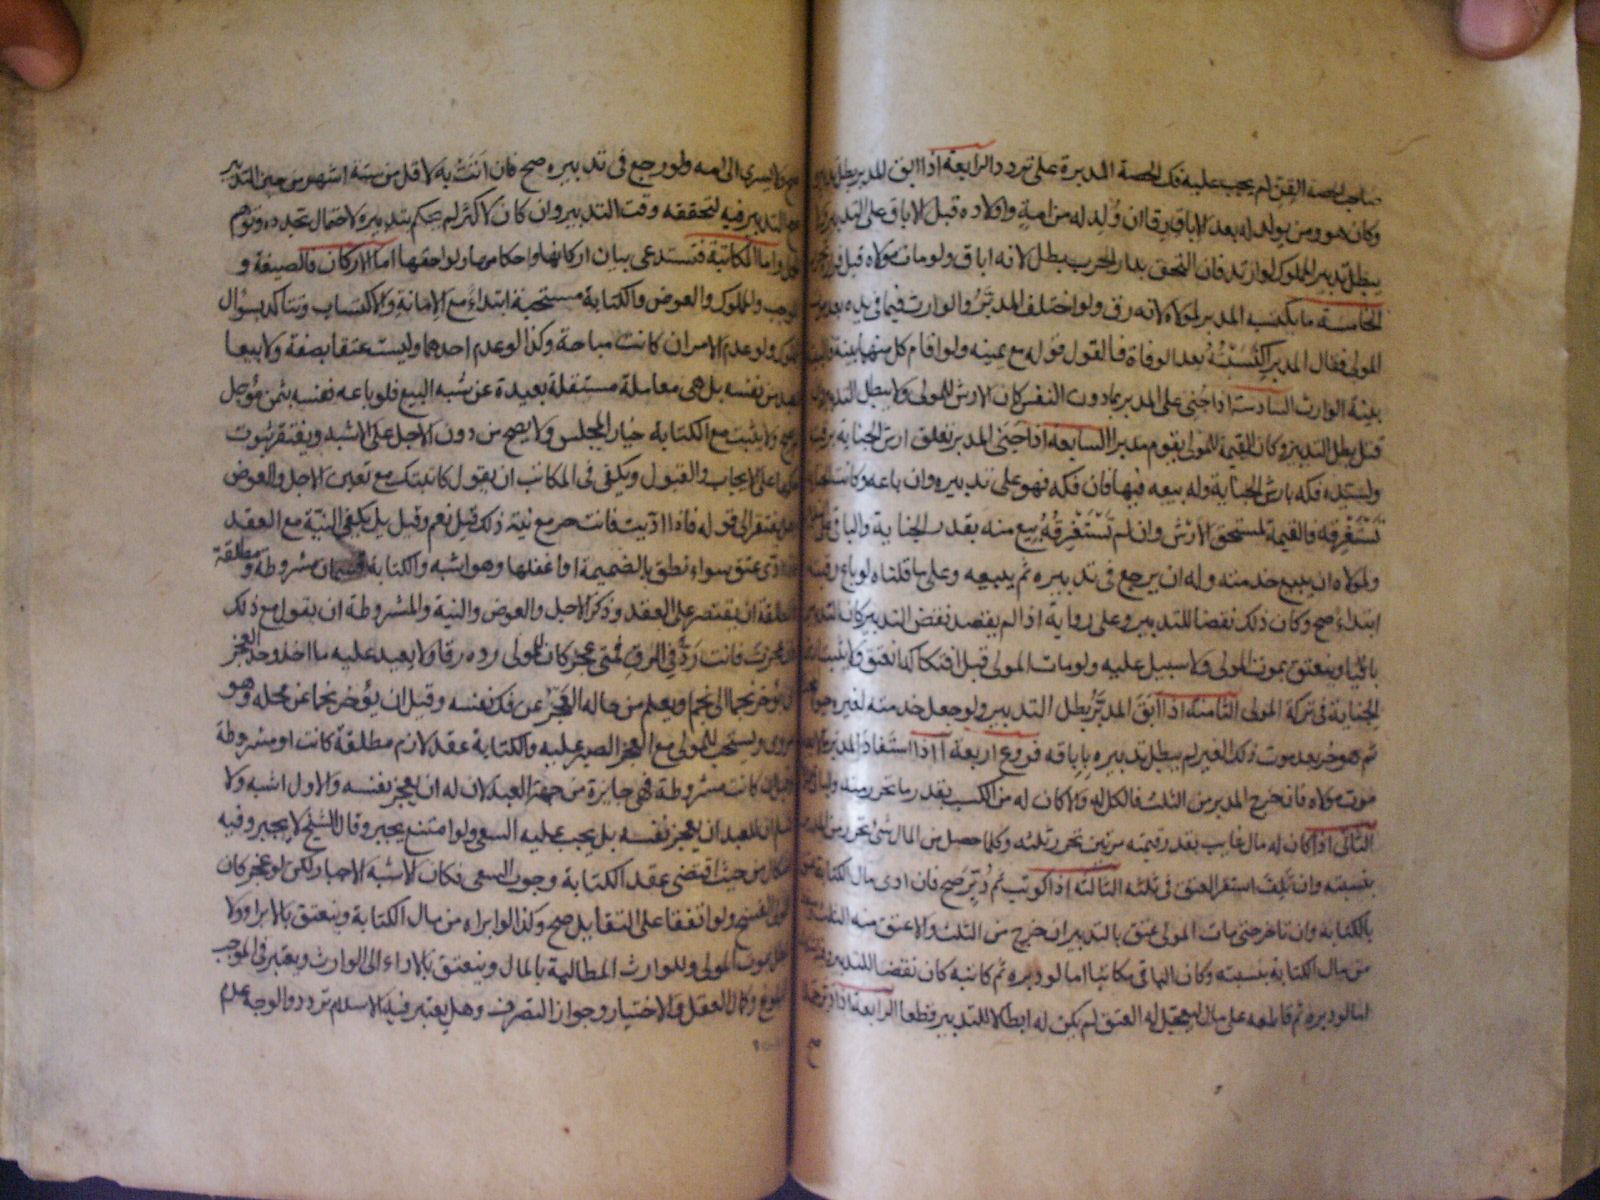 صاحب الحصة القن لم يجب عليه فك الحصة المدبرة على تردد الرابعة اذا ابق المدبر بطل تدبيره
وكان هو ومن يولد له بعد الاباق رقا ان ولد له من امة واولاده قبل الاباق على التدبير ولا
يبطل تدبير المملوك لو ارتد فان التحق بدار الحرب بطل لانه اباق ولو مات مولاه قبل فراره تحرر
الخامسة ما يكتسبه المدبر لمولاه لانه رق ولو اختلف المدبر والوارث فيما فى يده بعد موت
المولى فقال المدبر اكتسبته بعد الوفاة فالقول قوله مع يمينه ولو اقام كل منهما بينة فالبينة
بينة الوارث السادسة اذا جنى على المدبر بما دون النفس كان الارش للمولى ولا يبطل التدبير وان
قتل بطل التدبير وكان القيمة للمولى يقوم مدبرا السابعة اذا جنى المدبر تعلق ارش الجناية برقبته
ولسيده فكه بارش الجناية وله بيعه فيها فان فكه فهو على تدبيره وان باعه وكانت الجناية
تستغرقه فالقيمة لمستحق الارش وان لم تستغرقه بيع منه بقدر الجناية والباقى على
ولمولاه ان يبيع خدمته وله ان يرجع فى تدبيره ثم يبيعه وعلى ما قلناه لو باع رقبته
ابتداء صح وكان ذلك نقضا للتدبير وعلى رواية اذا لم يقصد نقض التدبير كان التدبير
باقيا وينعتق بموت المولى ولا سبيل عليه ولو مات المولى قبل افتكاكه انعتق ولا يثبت ارش
الجناية فى تركة المولى الثامنة اذا ابق المدبر بطل التدبير ولو جعل خدمته لغيره وجوا
ثم هو حر بعد موت ذلك الغير لم يبطل تدبيره باباقه فروع اربعة ا اذا استفاد المدبر مالا بعد
موت مولاه فان خرج المدبر من الثلث فالكل له والا كان له من الكسب بقدر ما تحرر منه والباقى
الثانى اذا كان له مال غايب بقدر قيمته مرتين تحرر ثلثه وكلما حصل من المال شئ تحرر من المدبر
بنسبته وان تلف استقر العتق فى ثلثه الثالثة اذا كوتب ثم دبر صح فان ادى مال الكتابة عتق
بالكتابة وان تاخر حتى مات المولى عتق بالتدبير ان خرج من الثلث والا عتق منه الثلث وسقط
من مال الكتابة بنسبته وكان الباقى مكاتبا اما لو دبره ثم كاتبه كان نقضا للتدبير
اما لو دبره ثم قاطعه على مال ليعجل له العتق لم يكن له ابطالا للتدبير قطعا الرابعة اذا دبر حملا
صح ولا يسرى الى امه ولو رجع فى تدبيره صح فان اتت به لاقل من ستة اشهر من حين التدبير
صح التدبير فيه لتحققه وقت التدبير وان كان لاكثر لم يحكم بتدبيره لاحتمال تجدده وتوهم
الحمل واما المكاتبة فتستدعى بيان اركانها واحكامها ولواحقها اما الاركان فالصيغة و
الموجب والمملوك والعوض والكتابة مستحبة ابتداء مع الامانة والاكتساب وتتاكد بسؤال
المملوك ولو عدم الامران كانت مباحة وكذا لو عدم احدهما وليست عتقا بصفة ولا بيعا
للعبد من نفسه بل هى معاملة مستقلة بعيدة عن شبه البيع فلو باعه نفسه بثمن مؤجل
لم يصح ولا يثبت مع الكتابة خيار المجلس ولا يصح من دون الاجل على الاشبه ويفتقر ثبوت
حكمها على الايجاب والقبول ويكفى فى المكاتب ان يقول كاتبتك مع تعيين الاجل والعوض
وهل يفتقر الى قوله فاذا اديت فانت حر مع نية ذلك قيل نعم وقيل بل يكفى النية مع العقد
فاذا ادى عتق سواء نطق بالضميمة او اغفلها وهو اشبه والكتابة قسمان مشروطة ومطلقة
فالمطلقة ان يقتصر على العقد وذكر الاجل والعوض والنية والمشروطة ان يقول مع ذلك
فان عجزت فانت رد فى الرق فمتى عجز كان للمولى رده رقا ولا يعيد عليه ما اخذ وحد العجز
ان يؤخر نجما الى نجم او يعلم من حاله العجز عن فك نفسه وقيل ان يؤخر نجما عن محله وهو
مروى ويستحب للمولى مع العجز الصبر عليه والكتابة عقد لازم مطلقة كانت او مشروطة
وقيل ان كانت مشروطة فهى جايزة من جهة العبد لان له ان يعجز نفسه والاول اشبه ولا
نسلم ان للعبد ان يعجز نفسه بل يجب عليه السعى ولو امتنع يجبر وقال الشيخ لا يجبر وفيه
اشكال من حيث اقتضى عقد الكتابة وجوب السعى فكان الاشبه الاجبار لكن لو عجز كان
للمولى الفسخ ولو اتفقا على التقايل صح وكذا لو ابراه من مال الكتابة وينعتق بالابرا ولا
تبطل بموت المولى وللوارث المطالبة بالمال وينعتق بالاداء الى الوارث ويعتبر فى الموجب
البلوغ وكمال العقل والاختيار وجواز التصرف وهل يعتبر فيه الاسلام تردد والوجه عدم